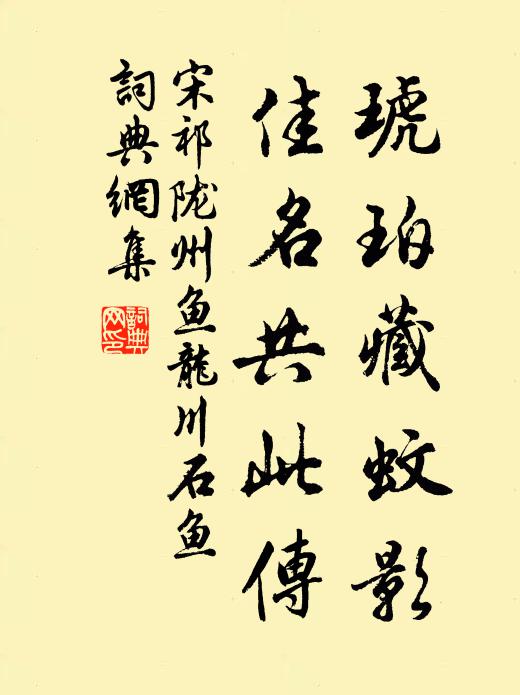 琥珀藏蚊影
佳名共此傳
宋祁陇州鱼龍川石鱼
詞典網集
詞典
网印